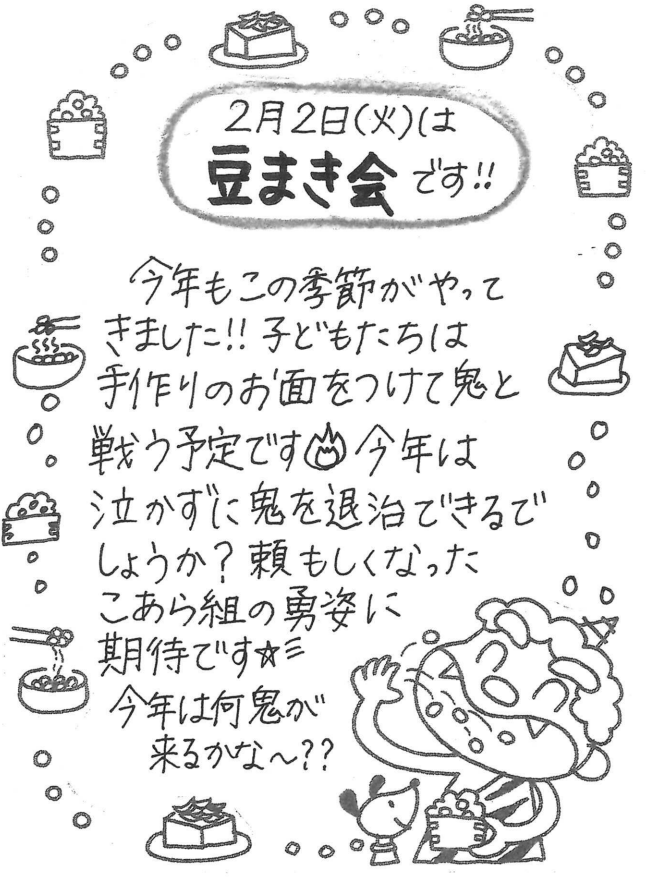 2月2日(火)は
豆まき会です!!
今年もこの季節がやって
きました!!子どもたちは
手作りのお面をつけて鬼と
戦う予定です 今年は
泣かずに鬼を退治できるで
しょうか?頼もしくなった
こあら組の勇姿に
期待です☆ミ
今年は何鬼が
来るかな〜??